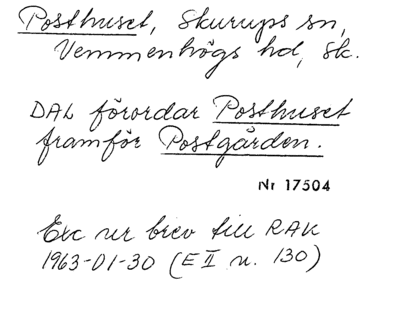 Posthuset, Skurups sn,
Vemmenhögs hd, Sk.
DAL förordar Posthuset
framför Postgården.
Nr 17504
Exc ur brev till RAK
1963-01-30 (E II u. 130)